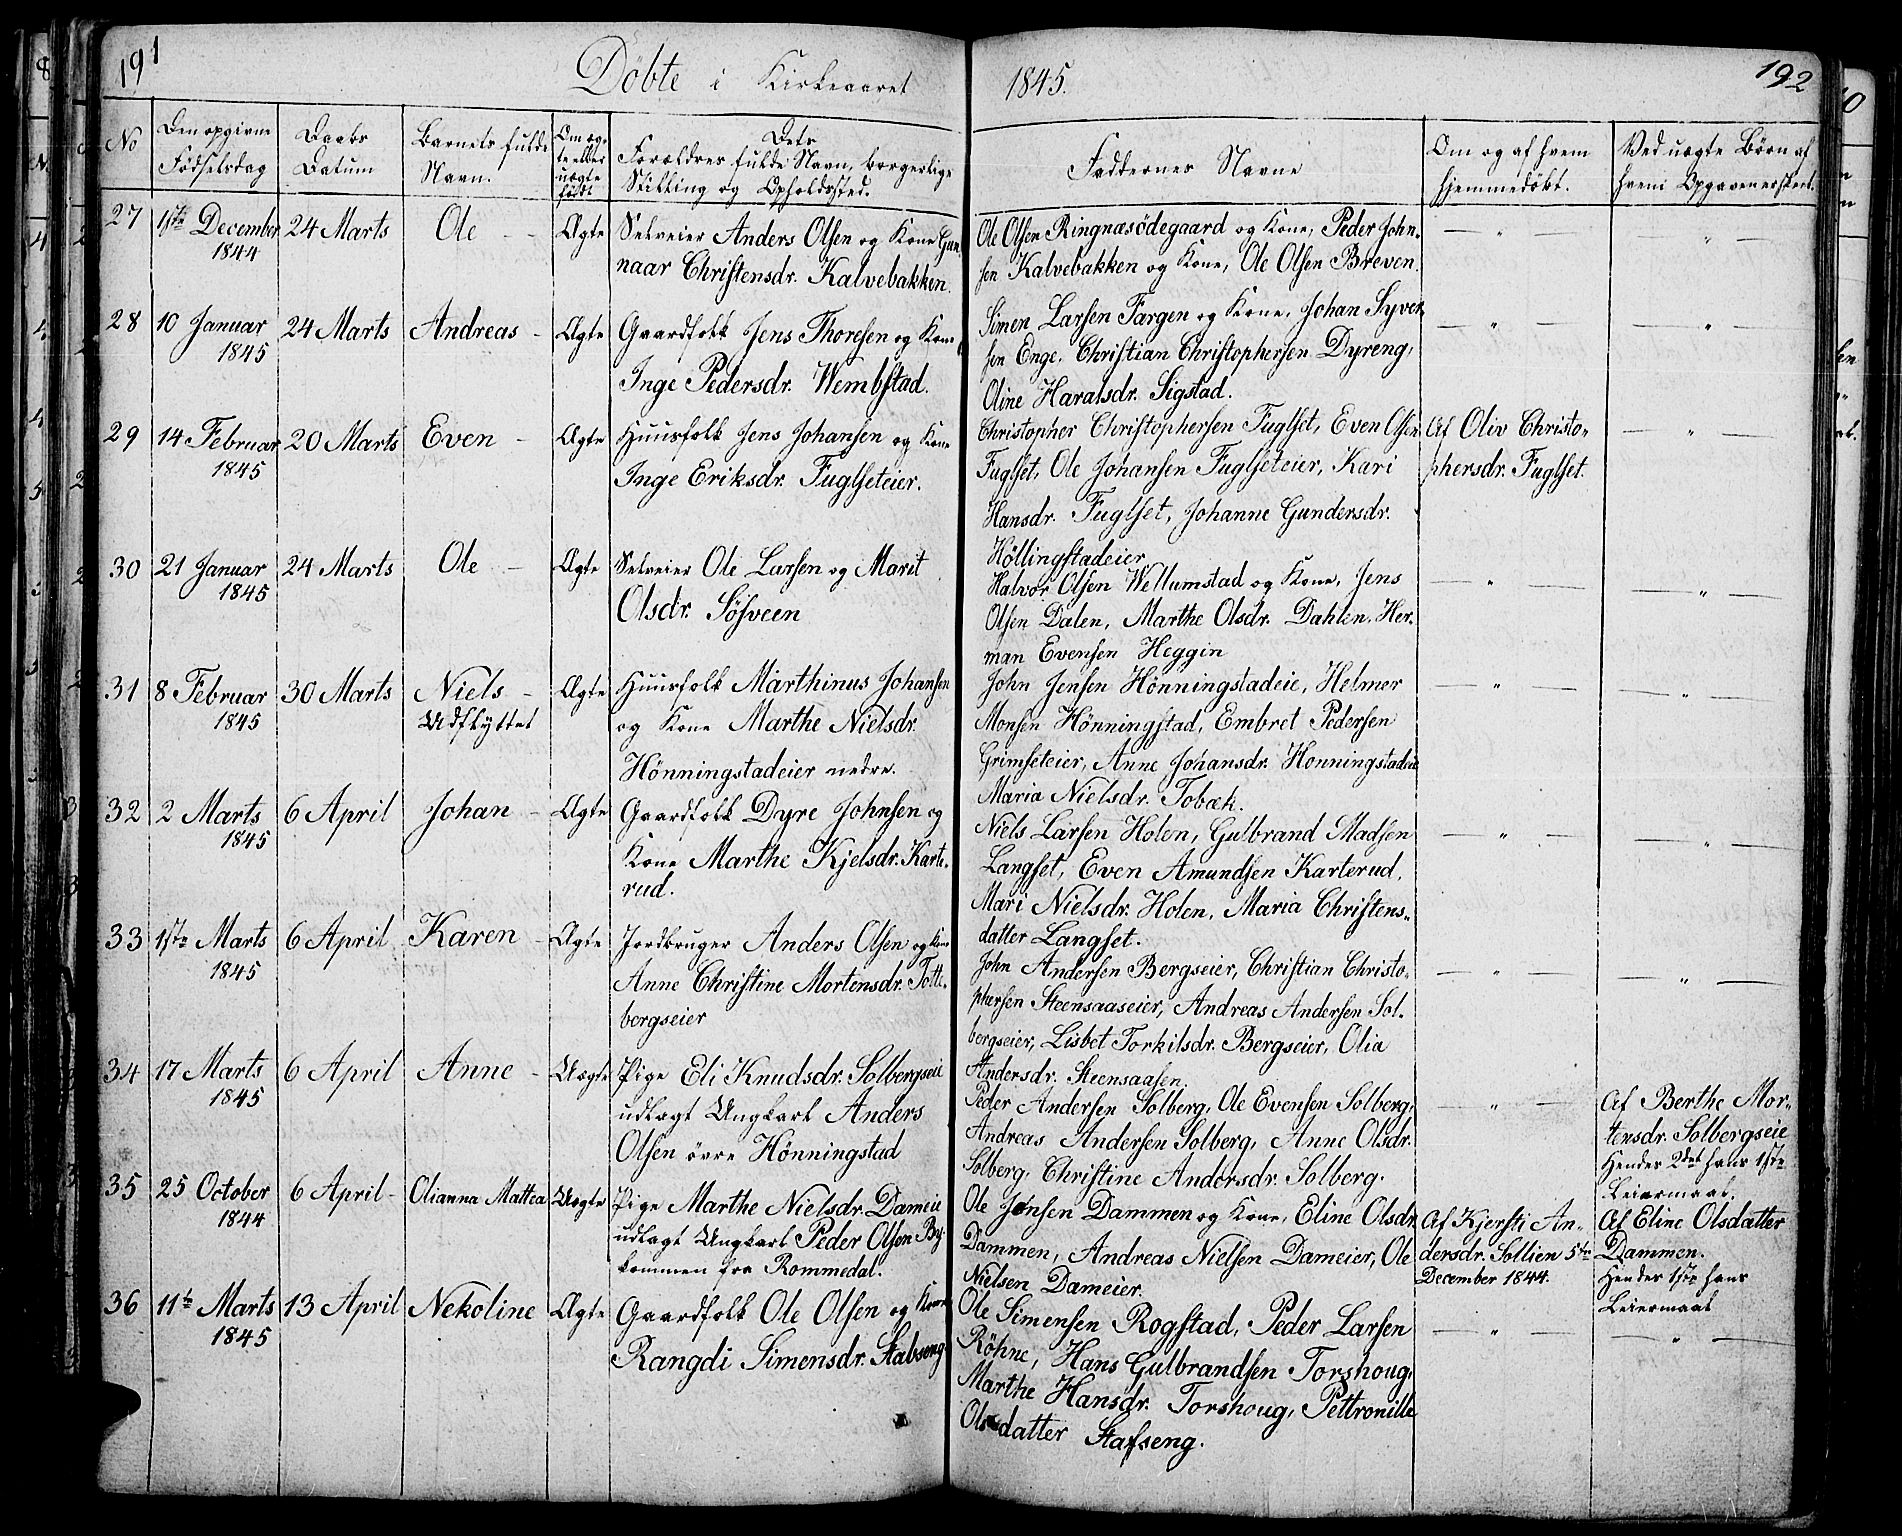 191
Döbte i Kirkeaaret 1845.
192
No
Den opgivne Födselsdag
Daabs Datum
Barnets fulde Navn.
Om ægte eller uægte födt
Dets Forældres fulde Navn, borgerlige Stilling og Opholdssted.
Faddernes Navne
Om og af hvem hjemmedöbt.
Ved uægte Börn af hvem Opgaven er skeet.
27 1ste December 24 Marts Ole - - Ægte Selveier Anders Olsen og Kone Gun- Ole Olsen Ringnæsödegaard og Kone, Peder John- — " — — " —
1844 naar Christensdr. Kalvebakken. sen Kalvebakken og Kone, Ole Olsen Breven.
28 10 Januar 24 Marts Andreas - Ægte Gaardfolk Jens Thoresen og Kone Simen Larsen Fargen og Kone, Johan Syver- — " — — " —
1845 Inge Pedersdr. Wembstad. sen Enge, Christian Christophersen Dyreng,
Oline Haralsdr. Sigstad.
29 14 Februar 20 Marts Even - Ægte Huusfolk Jens Johansen og Kone Christopher Christophersen Fuglset, Even Olsen Af Oliv Christo- — " —
1845 Inge Eriksdr. Fuglseteier. Fuglset, Ole Johansen Fuglseteier, Kari phersdr. Fuglset.
Hansdr. Fuglset, Johanne Gundersdr.
Höllingstadeier
30 21 Januar 24 Marts Ole - Ægte Selveier Ole Larsen og Marit Halvor Olsen Wellumstad og Kone, Jens — " — — " —
1845 Olsdr. Sösveen Olsen Dalen, Marthe Olsdr. Dahlen, Her-
man Evensen Heggin
31 8 Februar 30 Marts Niels - Ægte Huusfolk Marthinus Johansen John Jensen Hönningstadeie, Helmer — " — — " —
1845 Udflyttet og Kone Marthe Nielsdr. Monsen Hönningstad, Embret Pedersen
Hönningstadeier nedre. Grimseteier, Anne Johansdr. Honningstadeie
Maria Nielsdr. Tobæk.
32 2 Marts 6 April Johan - Ægte Gaardfolk Dyre Johnsen og Niels Larsen Holen, Gulbrand Madsen — " — — " —
1845 Kone Marthe Kjelsdr. Karte- Langset, Even Amundsen Karterud,
rud. Mari Nielsdr. Holen, Maria Christens-
datter Langset.
33 1ste Marts 6 April Karen - Ægte Jordbruger Anders Olsen og Kone John Andersen Bergseier, Christian Christo- — " — — " —
1845 Anne Christine Mortensdr. Totte- phersen Steensaaseier, Andreas Andersen Sol-
bergseier bergseier, Lisbet Torkilsdr. Bergseier, Olia
Andersdr. Steensaasen.
34 17 Marts 6 April Anne - Uægte Pige Eli Knudsdr. Solbergseie Peder Andersen Solberg, Ole Evensen Solberg, — " — Af Berthe Mor-
1845 udlagt Ungkarl Anders Andreas Andersen Solberg, Anne Olsdr. tensdr. Solbergseie
Olsen övre Hönningstad Solberg, Christine Andersdr. Solberg. Hendes 2det hans 1ste
Leiermaal.
35 25 October 6 April - Olianna Mattea Uægte Pige Marthe Nielsdr. Dameie Ole Jönsen Dammen og Kone, Eline Olsdr. Af Kjersti An- Af Eline Olsdatter
1844 udlagt Ungkarl Peder Olsen By- Dammen, Andreas Nielsen Dameier, Ole dersdr. Sollien 5te Dammen.
kommen fra Rommedal. Nielsen Dameier. December 1844. Hendes 1ste hans
Leiermaal
36 11te Marts 13 April Nekoline Ægte Gaardfolk Ole Olsen og Kone Ole Simensen Rogstad, Peder Larsen — " — — " —
1845 Rangdi Simensdr. Stabseng Röhne, Hans Gulbrandsen Torshoug,
Marthe Hansdr. Torshoug, Pettronille
Olsdatter Stafseng.